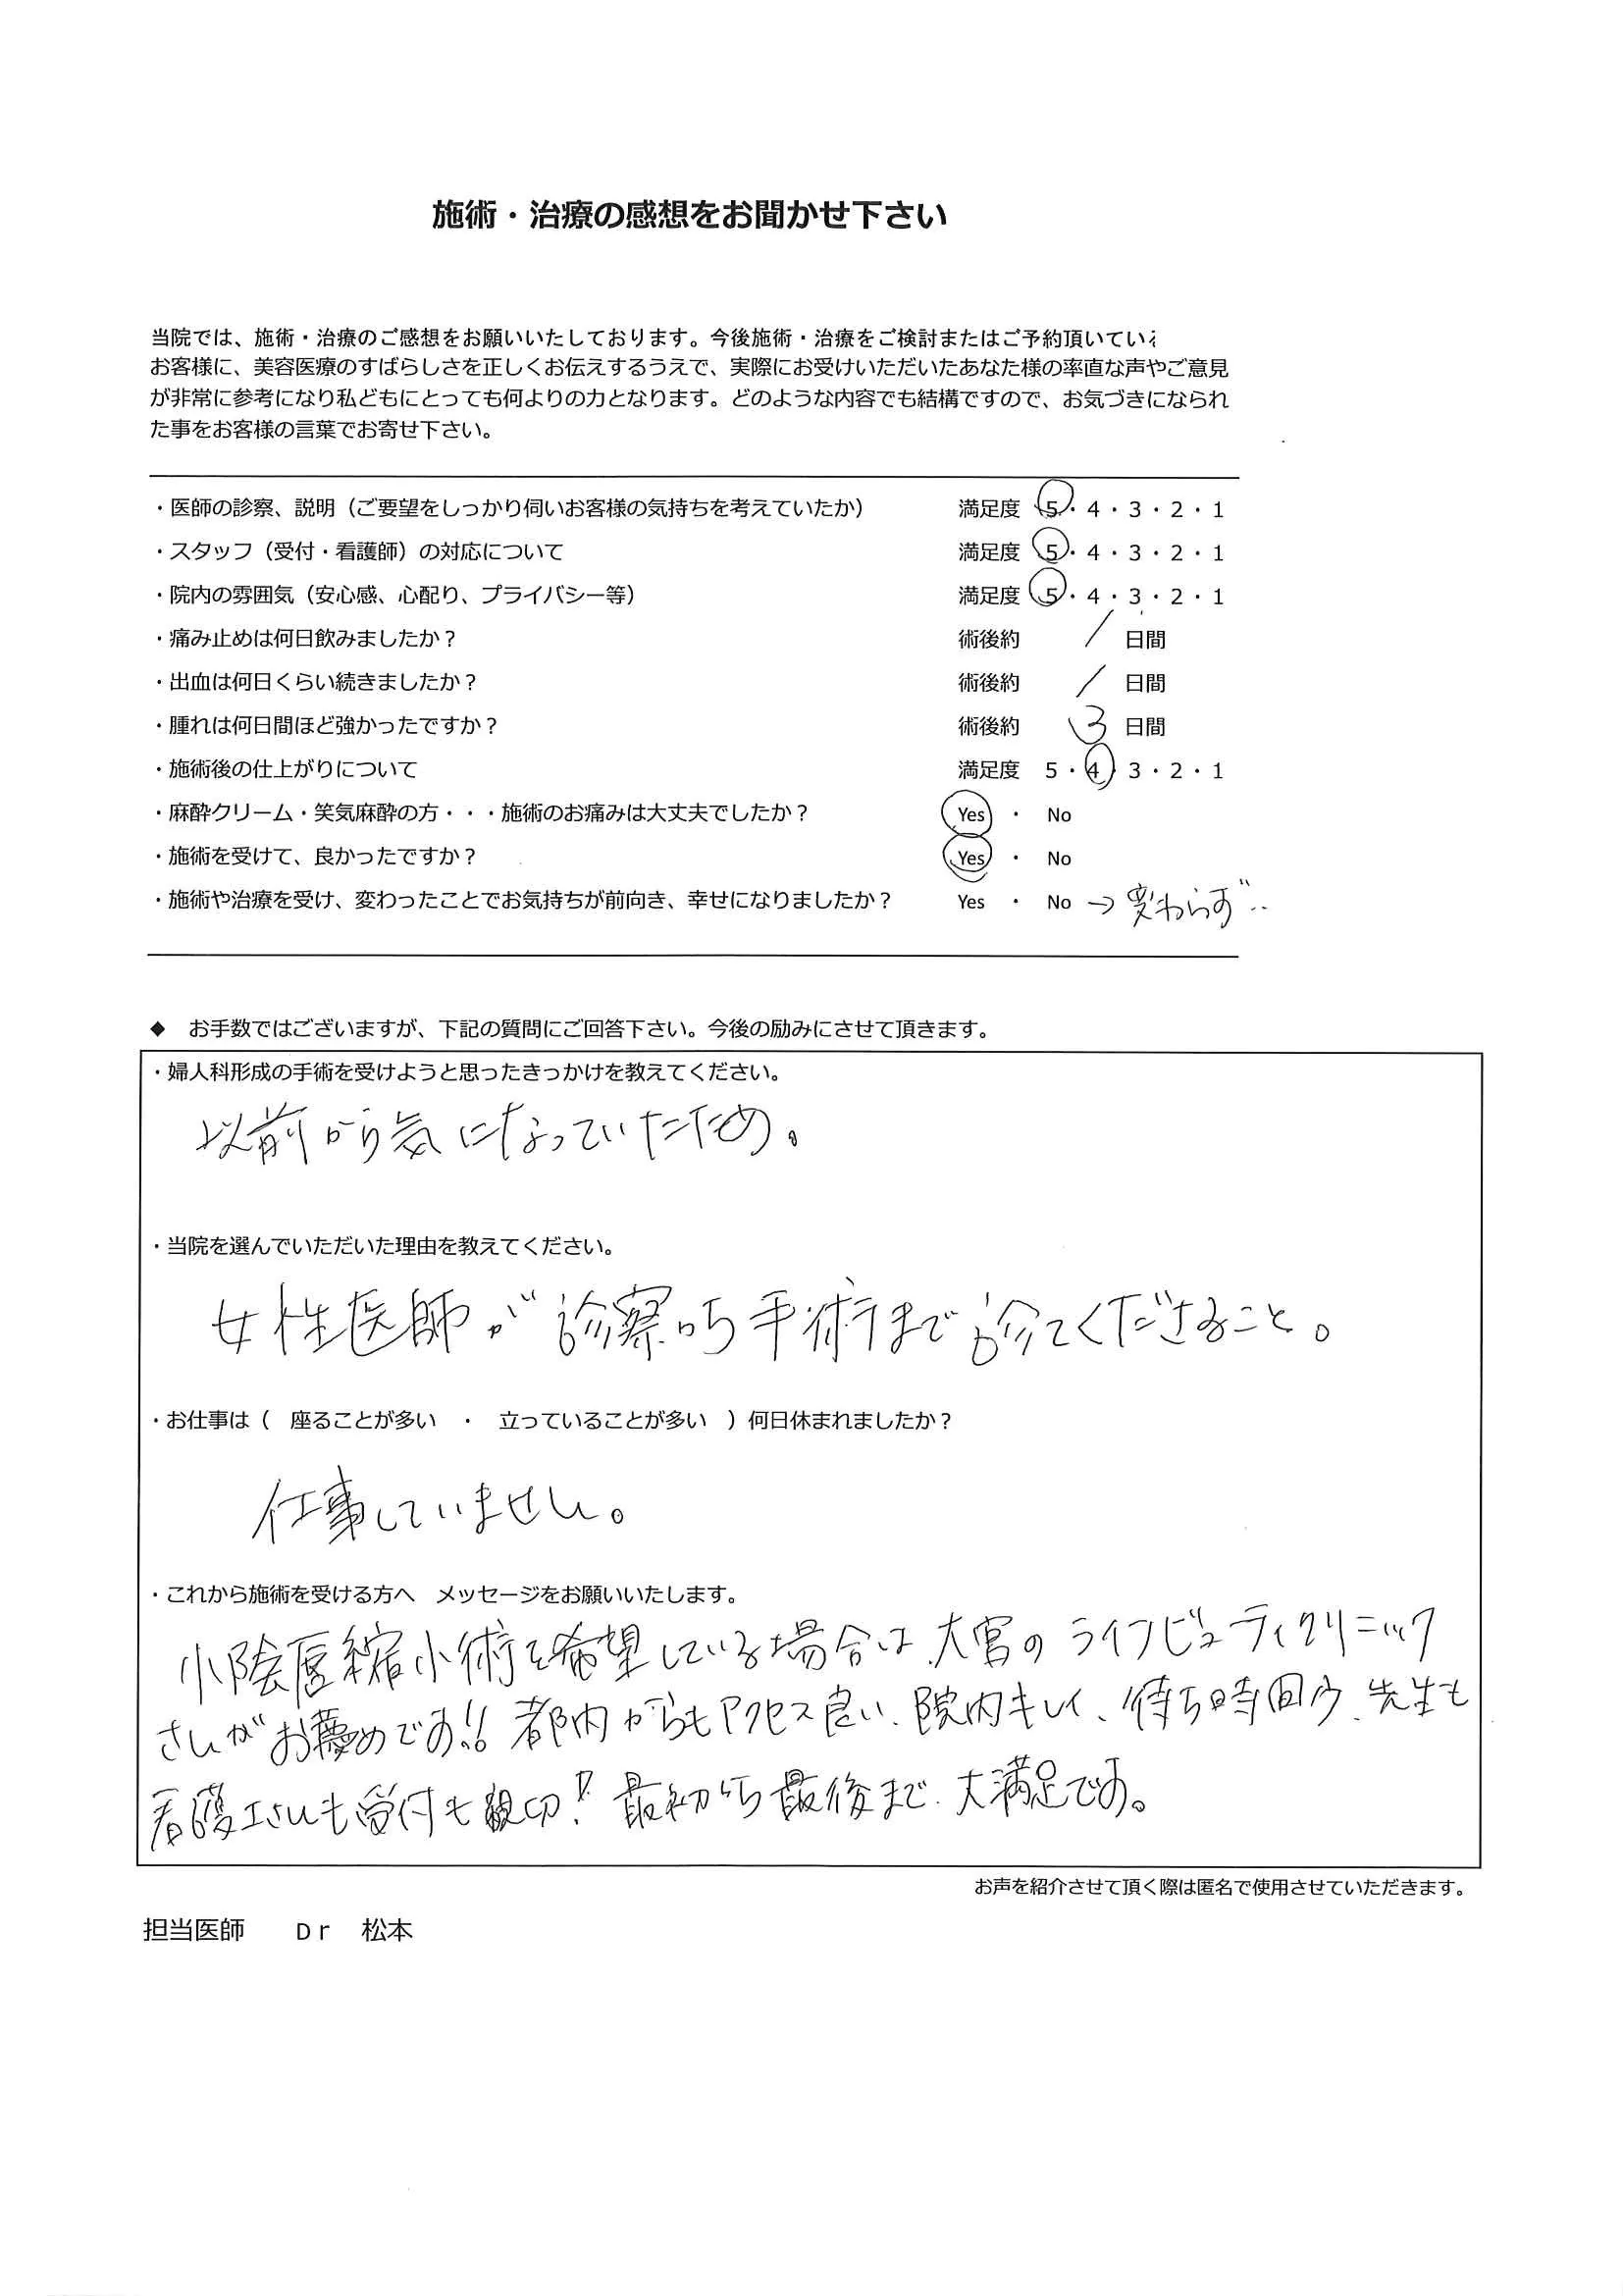 施術・治療の感想をお聞かせ下さい
当院では、施術・治療のご感想をお願いいたしております。今後施術・治療をご検討またはご予約頂いてい
お客様に、美容医療のすばらしさを正しくお伝えするうえで、実際にお受けいただいたあなた様の率直な声やご意見
が非常に参考になり私どもにとっても何よりの力となります。どのような内容でも結構ですので、お気づきになられ
た事をお客様の言葉でお寄せ下さい。
・医師の診察、説明（ご要望をしっかり伺いお客様の気持ちを考えていたか） 満足度 5・4・3・2・1
・スタッフ（受付・看護師）の対応について 満足度 5・4・3・2・1
・院内の雰囲気（安心感、心配り、プライバシー等） 満足度 5・4・3・2・1
・痛み止めは何日飲みましたか？ 術後約 / 日間
・出血は何日くらい続きましたか？ 術後約 / 日間
・腫れは何日間ほど強かったですか？ 術後約 3 日間
・施術後の仕上がりについて 満足度 5・4・3・2・1
・麻酔クリーム・笑気麻酔の方・・・施術のお痛みは大丈夫でしたか？ Yes ・ No
・施術を受けて、良かったですか？ Yes ・ No
・施術や治療を受け、変わったことでお気持ちが前向き、幸せになりましたか？ Yes ・ No → 変わらず‥
◆ お手数ではございますが、下記の質問にご回答下さい。今後の励みにさせて頂きます。
・婦人科形成の手術を受けようと思ったきっかけを教えてください。
以前から気になっていたため。
・当院を選んでいただいた理由を教えてください。
女性医師が診察から手術まで診てくださること。
・お仕事は（ 座ることが多い ・ 立っていることが多い ）何日休まれましたか？
仕事していません。
・これから施術を受ける方へ メッセージをお願いいたします。
小陰唇縮小術を希望している場合は、大宮のライフビューティクリニック
さんがお薦めです!! 都内からもアクセス良い、院内キレイ、待ち時間少、先生も
看護士さんも受付も親切! 最初から最後まで、大満足です。
お声を紹介させて頂く際は匿名で使用させていただきます。
担当医師 Dr 松本